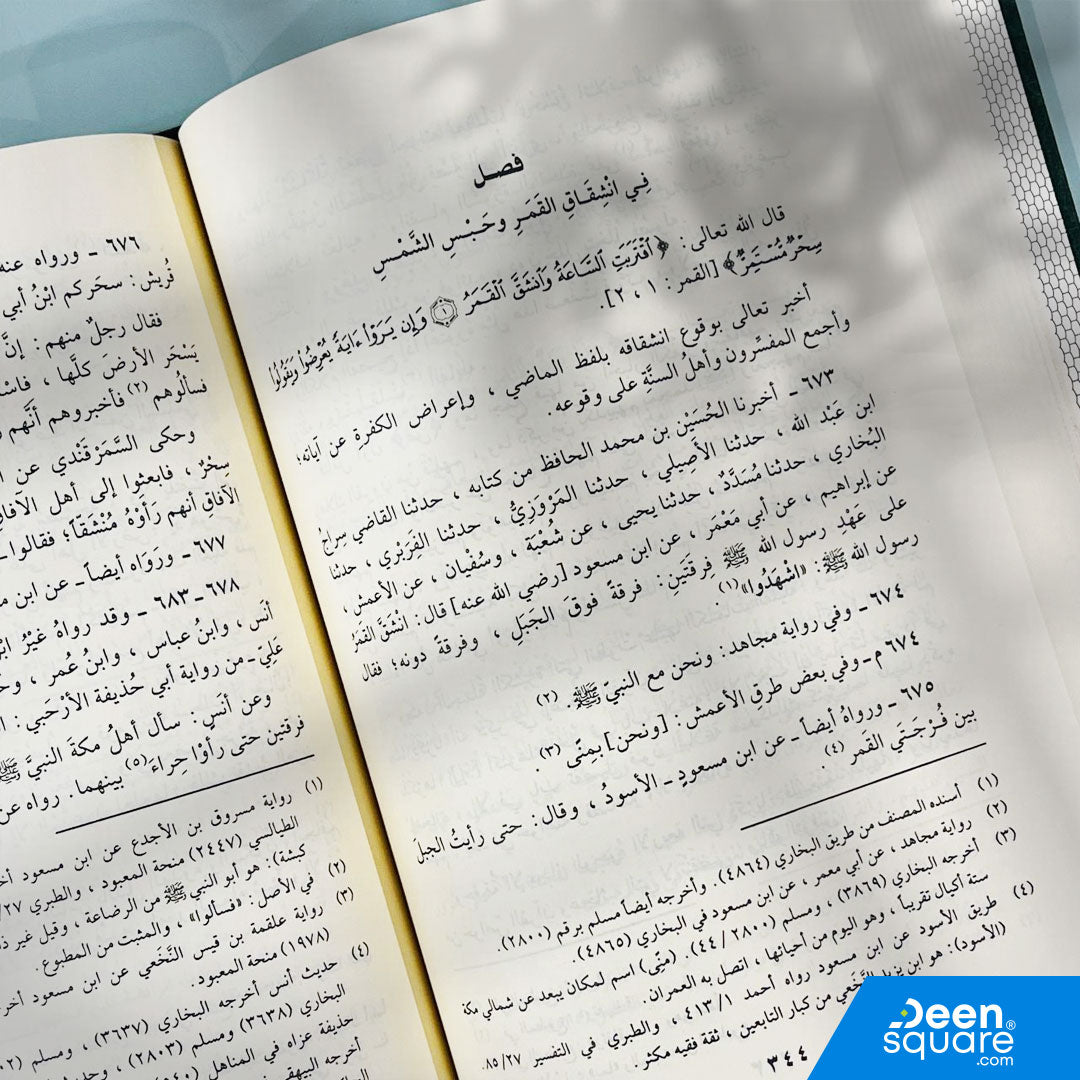 فصل
فِي انْشِقَاقِ القَمَرِ وحَبْسِ الشَّمْسِ
قال الله تعالى: ﴿ ٱقْتَرَبَتِ ٱلسَّاعَةُ وَٱنشَقَّ ٱلْقَمَرُ ۝١ وَإِن يَرَوْا۟ ءَايَةً يُعْرِضُوا۟ وَيَقُولُوا۟
سِحْرٌ مُّسْتَمِرٌّ﴾ [القمر: ١ ، ٢].
أخبر تعالى بوقوع انشقاقه بلفظ الماضي ، وإعراض الكفرةِ عن آياته؛
وأجمع المفسِّرون وأهلُ السنَّةِ على وقوعه.
٦٧٣ - أخبرنا الحُسَيْن بن محمد الحافظ من كتابه ، حدثنا القاضي سِراجُ
ابن عَبْد الله ، حدثنا الأَصِيلي ، حدثنا المَرْوَزِيُّ ، حدثنا الفِرَبْري ، حدثنا
البُخاري ، حدثنا مُسَدَّدٌ ، حدثنا يحيى ، عن شُعْبَة ، وسُفْيان ، عن الأعمش ،
عن إبراهيم ، عن أبي مَعْمَر ، عن ابن مسعود [رضي الله عنه] قال: انْشَقَّ القَمَرُ
على عَهْدِ رسول الله ﷺ فِرقتَين: فرقةً فوقَ الجَبَلِ ، وفرقةً دونه؛ فقال
رسول الله ﷺ: «اشْهَدُوا»(١).
٦٧٤ - وفي رواية مجاهد: ونحن مع النبيّ ﷺ. (٢)
٦٧٤ م - وفي بعض طرقِ الأعمش: [ونحن] بِمِنًى (٣).
٦٧٥ - ورواهُ أيضاً - عن ابن مسعودٍ - الأسودُ ، وقال: حتى رأيتُ الجبلَ
بين فُرْجَتَي القَمر (٤).
(١) أسنده المصنف من طريق البخاري (٤٨٦٤). وأخرجه أيضاً مسلم برقم (٢٨٠٠).
(٢) رواية مجاهد ، عن أبي معمر ، عن ابن مسعود في البخاري (٤٨٦٥).
(٣) أخرجه البخاري (٣٨٦٩) ، ومسلم (٢٨٠٠/٤٤). (منًى) اسم لمكان يبعد عن شمالي مكة
ستة أكيال تقريباً ، وهو اليوم من أحيائها ، اتصل به العمران.
(٤) طريق الأسود عن ابن مسعود رواه أحمد ٤١٣/١ ، والطبري في التفسير ٨٥/٢٧.
(الأسود): هو ابن يزيد النَّخَعي من كبار التابعين ، ثقة فقيه مكثر.
٣٤٤
٦٧٦ - ورواه عنه
قُريش: سحَركم ابْنُ أبي
فقال رجلٌ منهم: إنَّ
يَسْحَر الأرضَ كلَّها ،
فسألُوهم (٢) فأخبروهم أنَّهم
وحكى السَّمَرْقَنْدي عن
سِحْرٌ ، فابعثوا إلى أهل الآفاق
الآفاقِ أنهم رَأَوْهُ مُنْشَقّاً؛ فقالوا
٦٧٧ - ورَوَاه أيضاً - عن ابن
٦٧٨ - ٦٨٣ - وقد رواهُ غيْرُ
أنَس ، وابنُ عباس ، وابنُ عُمر ،
عَلِيّ - من رواية أبي حُذيفة الأرْحَبي:
وعن أنَسٍ: سأل أهلُ مكةَ النبيَّ ﷺ
فرقتين حتى رأَوْا حِراءَ (٥) بينهما. رواه عن
(١) رواية مسروق بن الأجدع عن ابن مسعود
الطيالسي (٢٤٤٧) منحة المعبود ، والطبري
كبشة): هو أبو النبي ﷺ من الرضاعة ، وقيل غير
(٢) في الأصل: «فسألوا» ، والمثبت من المطبوع.
(٣) رواية علقمة بن قيس النَّخَعي عن ابن مسعود
(١٩٧٨) منحة المعبود.
(٤) حديث أنس أخرجه البخاري (٣٦٣٧) ، ومسلم
البخاري (٣٦٣٨) ومسلم (٢٨٠٣) ،
حذيفة عزاه في المناهل
أخرجه
Deen
square®
.com